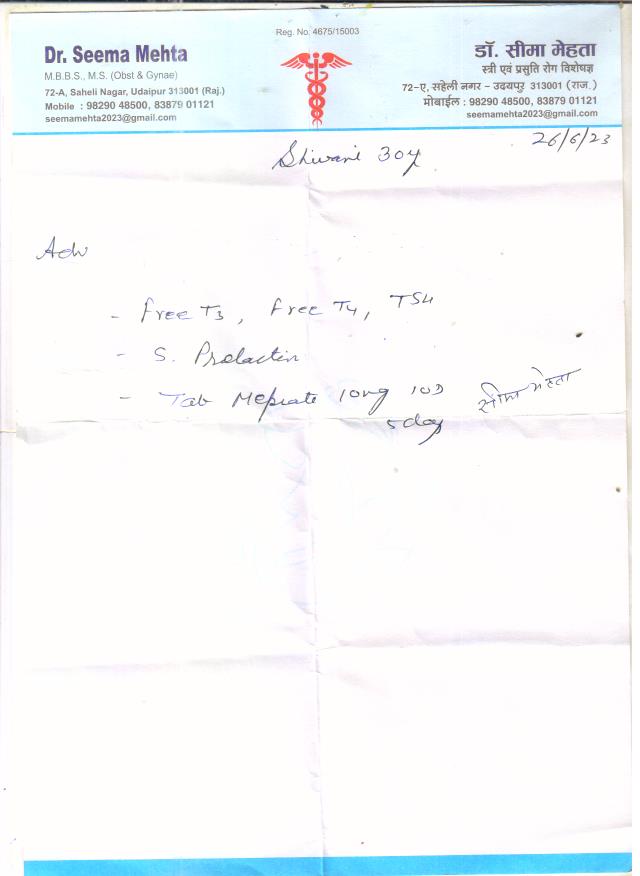 Reg. No. 4675/15003
Dr. Seema Mehta
M.B.B.S., M.S. (Obst & Gynae)
72-A, Saheli Nagar, Udaipur 313001 (Raj.)
Mobile : 98290 48500, 83879 01121
seemamehta2023@gmail.com
डॉ. सीमा मेहता
स्त्री एवं प्रसुति रोग विशेषज्ञ
72-ए, सहेली नगर - उदयपुर 313001 (राज.)
मोबाईल : 98290 48500, 83879 01121
seemamehta2023@gmail.com
26/6/23
Shivani 30y
Adv
- Free T3, Free T4, TSH
- S. Prolactin
- Tab Meprate 10mg 1OD
5 day
सीमा मेहता